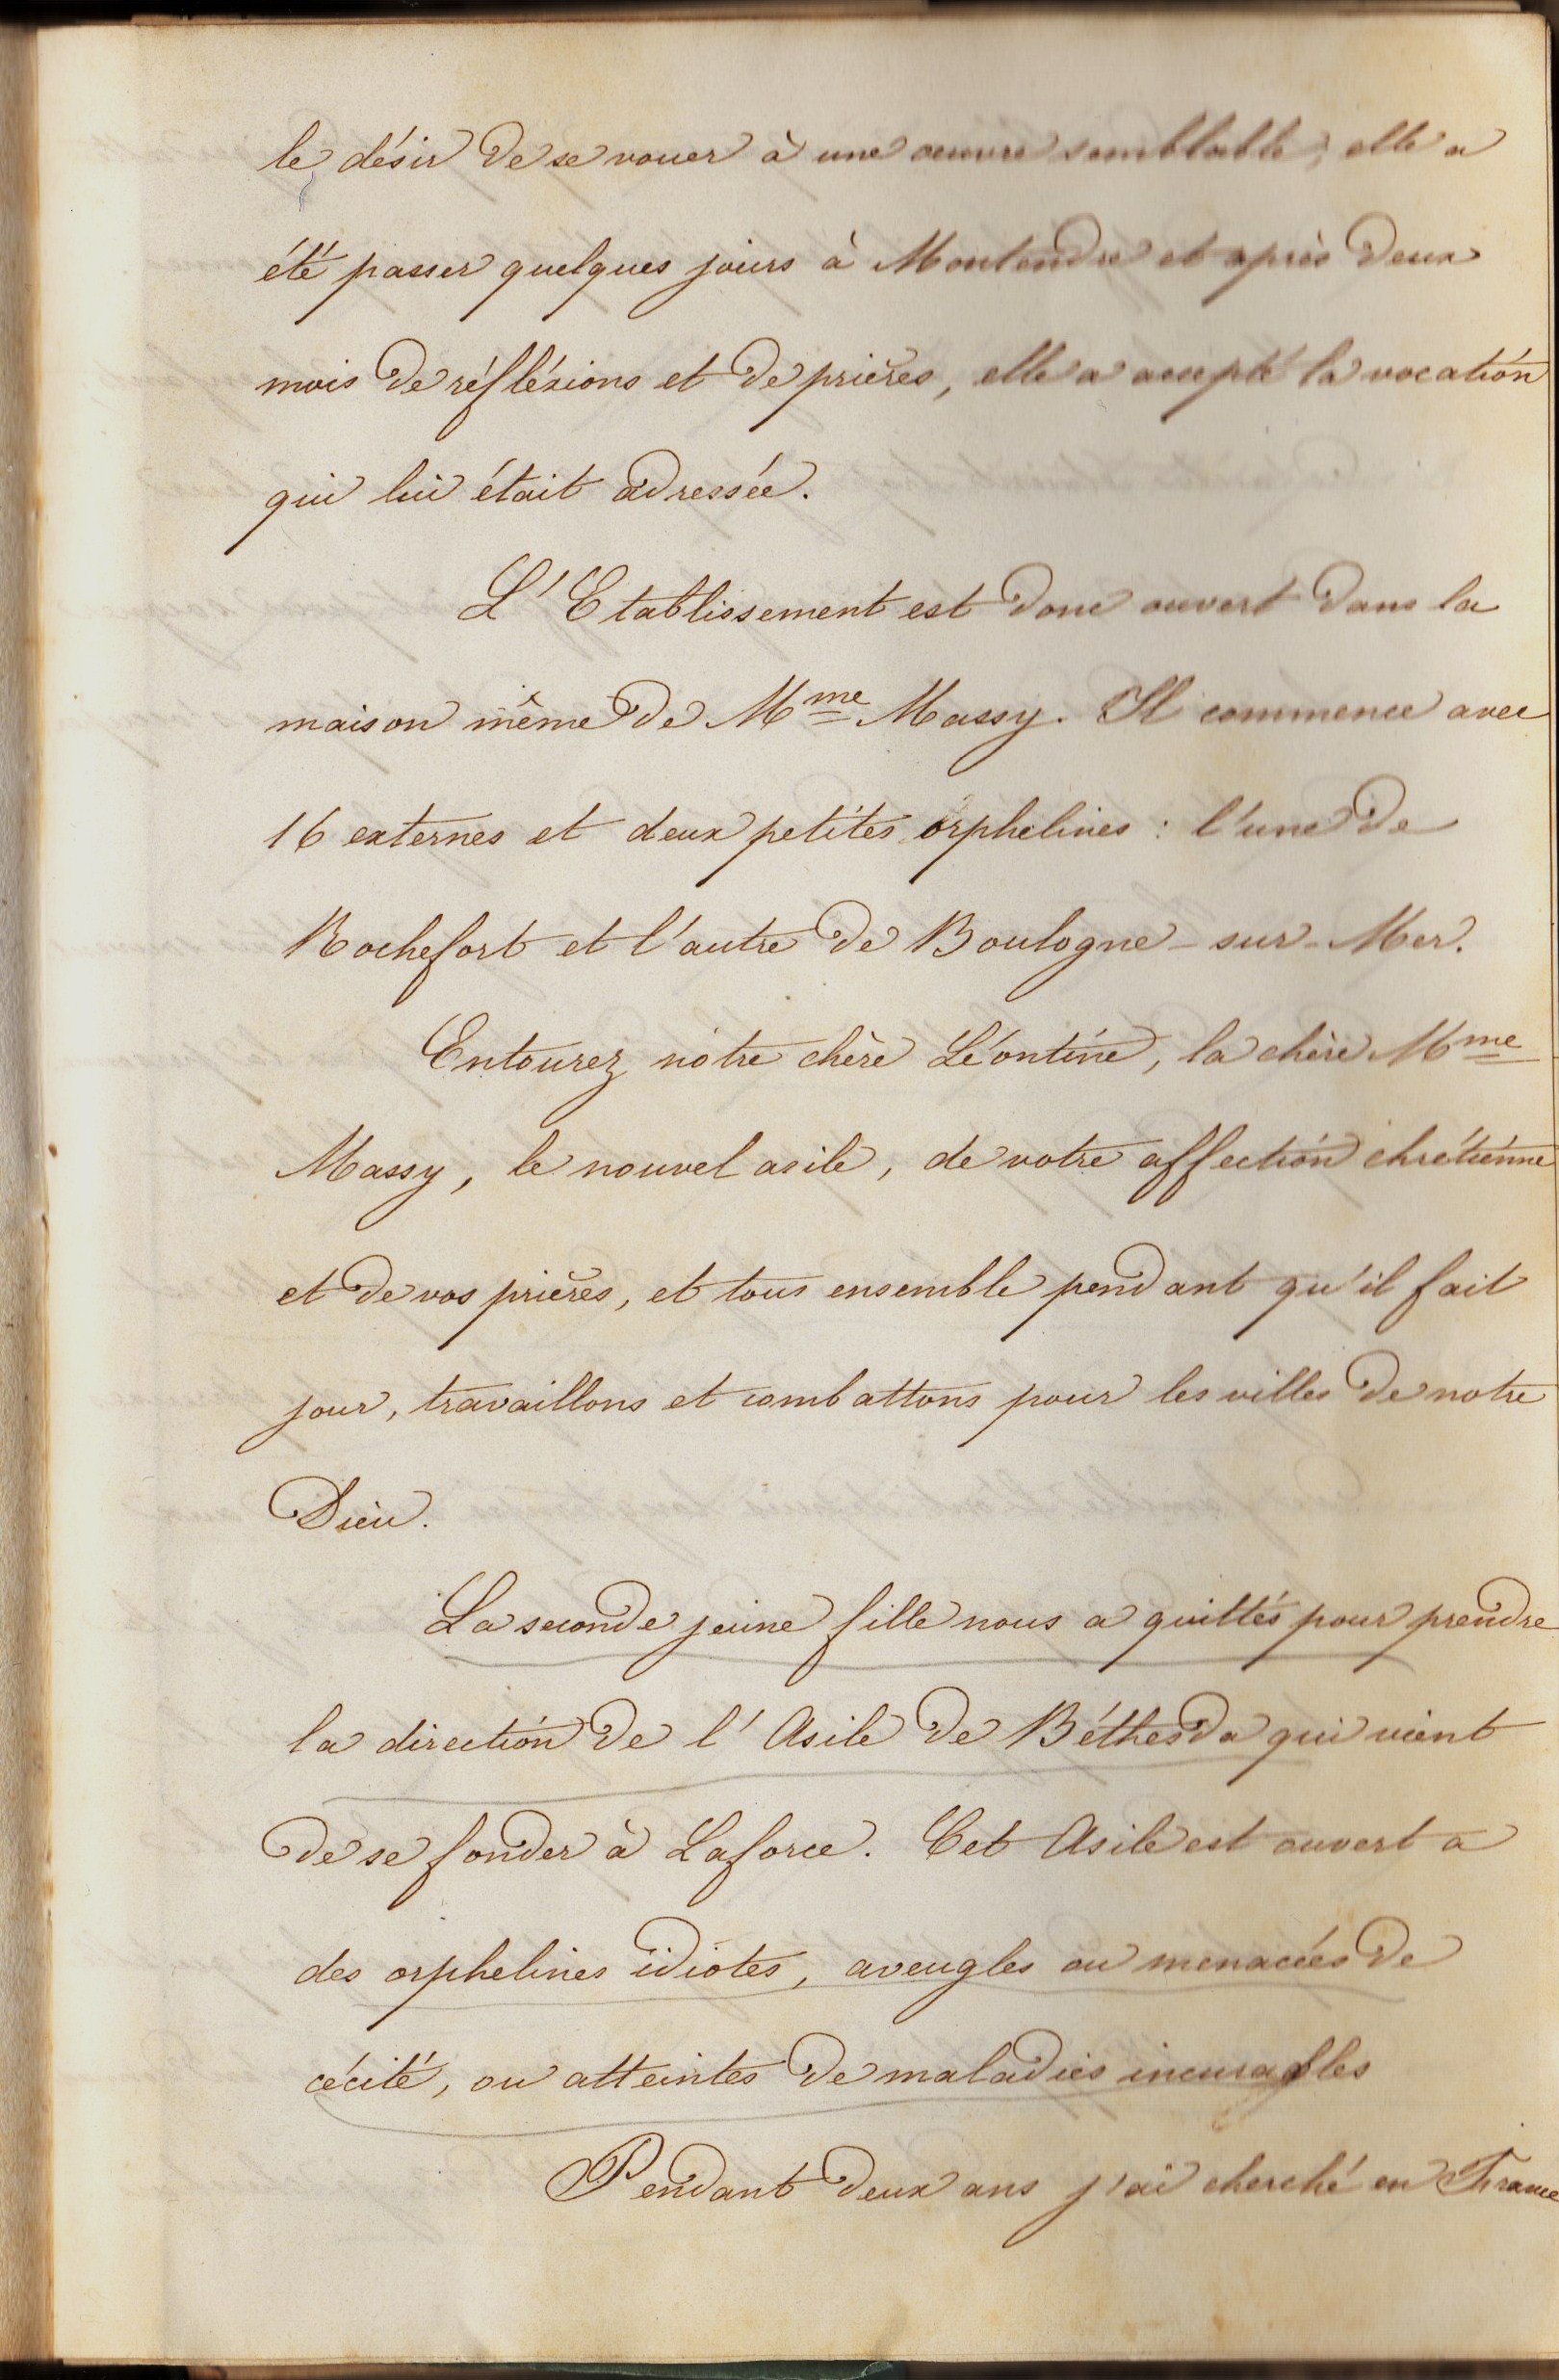 le désir de se vouer à une oeuvre semblable, elle a
été passer quelques jours à Montendre et après deux
mois de réfléxions et de prières, elle a accepté la vocation
qui lui était adressée.
L'Etablissement est donc ouvert dans la
maison même de Mme Massy. Il commence avec
16 externes et deux petites orphelines : l'une de
Rochefort et l'autre de Boulogne-sur-Mer.
Entourez notre chère Léontine, la chère Mme
Massy, le nouvel asile, de votre affection chrétienne
et de vos prières, et tous ensemble pendant qu'il fait
jour, travaillons et combattons pour les villes de notre
Dieu.
La seconde jeune fille nous a quittés pour prendre
la direction de l'Asile de Béthesda qui vient
de se fonder à Laforce. Cet Asile est ouvert a
des orphelines idiotes, aveugles ou menacées de
cécité, ou atteintes de maladies incurables
Pendant deux ans j'ai cherché en France